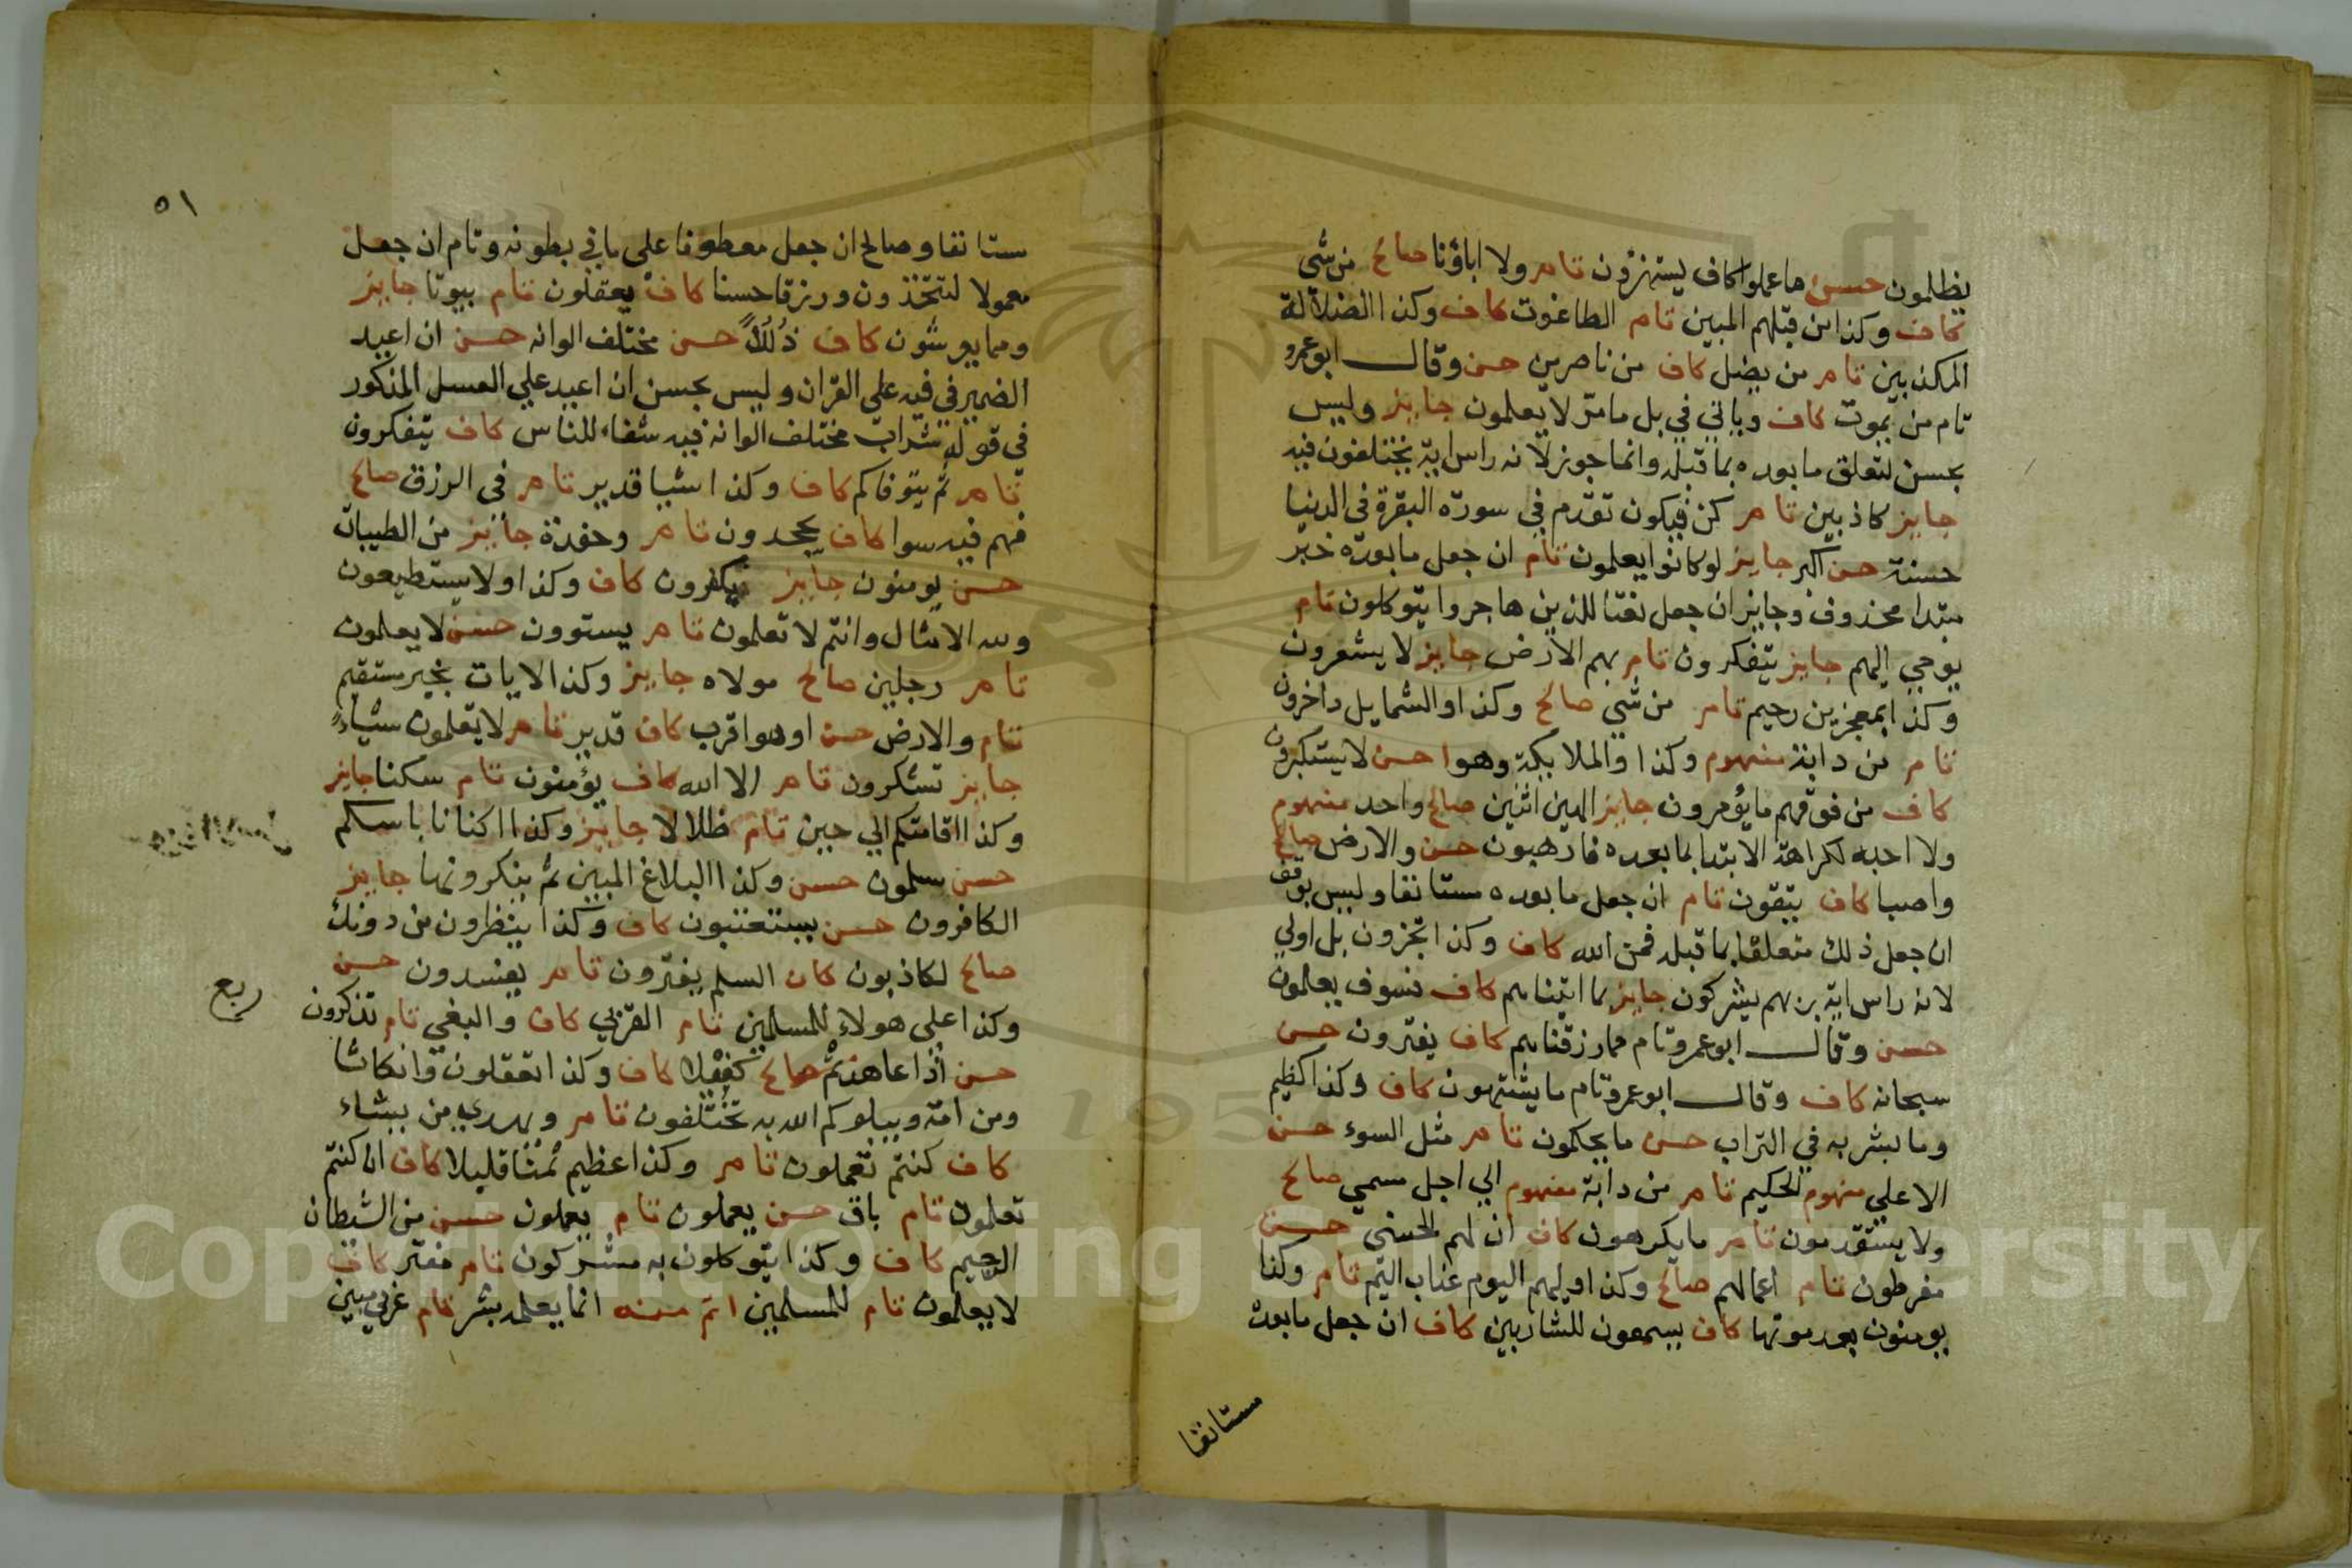 يظلمون حسن ما عملوا كاف يستهزؤن تام ولا اباؤنا صالح من شي
كاف وكذا من قبلهم المبين تام الطاغوت كاف وكذا الضلالة
المكذبين تام من يضل كاف من ناصرين حسن وقال ابو عمرو
تام من يموت كاف وياتي في بل ما مر لا يعلمون جايز وليس
بحسن لتعلق ما بعده بما قبله وانما جوز لانه راس اية يختلفون فيه
جايز كاذبين تام كن فيكون تقدم في سورة البقرة في الدنيا
حسنة حسن اكبر جايز لو كانوا يعلمون تام ان جعل ما بعده خبر
مبتدا محذوف وجايز ان جعل نعتا للذين هاجروا يتوكلون تام
يوحي اليهم جايز يتفكرون تام بهم الارض جايز لا يشعرون
وكذا بمعجزين رحيم تام من شي صالح وكذا والشمايل داخرون
تام من دابة مفهوم وكذا والملايكة وهوا حسن لا يستكبرون
كاف من فوقهم ما يؤمرون جايز الهين اثنين صالح واحد مفهوم
ولا احبه لكراهة الابتدا بما بعده فارهبون حسن والارض صالح
واصبا كاف يتقون تام ان جعل ما بعده مستانفا وليس بوقف
ان جعل ذلك متعلقا بما قبله فمن الله كاف وكذا تجزون بل اولي
لانه راس اية بربهم يشركون جايز بما اتيناهم كاف فسوف يعلمون
حسن وقال ابو عمرو تام مما رزقناهم كاف يفترون حسن
سبحانه كاف وقال ابو عمرو تام ما يشتهون كاف وكذا كظيم
وما بشر به في التراب حسن ما يحكمون تام مثل السوء حسن
الاعلي مفهوم الحكيم تام من دابة مفهوم الي اجل مسمي صالح
ولا يستقدمون تام ما يكرهون كاف ان لهم الحسني حسن
مفرطون تام اعمالهم صالح وكذا وليهم اليوم عذاب اليم تام وكذا
يومنون بعد موتها كاف يسمعون للشاربين كاف ان جعل ما بعده
ستانفا
٥١
ستانفا وصالح ان جعل معطوفا على ما في بطونه وتام ان جعل
معمولا لتتخذون ورزقا حسنا كاف يعقلون تام بيوتا جايز
ومما يعرشون كاف ذُلُلاً حسن مختلف الوانه حسن ان اعيد
الضمير في فيه على القران وليس بحسن ان اعيد علي العسل المذكور
في قوله شراب مختلف الوانه فيه شفاء للناس كاف يتفكرون
تام ثم يتوفاكم كاف وكذا شيا قدير تام في الرزق صالح
فهم فيه سوا كاف يجحدون تام وحفدة جايز من الطيبات
حسن يومنون جايز يكفرون كاف وكذا ولا يستطيعون
ولله الامثال وانتم لا تعلمون تام يستوون حسن لا يعلمون
تام رجلين صالح مولاه جايز وكذا لايات بخير مستقيم
تام والارض حسن او هوا قرب كاف قدير تام لا تعلمون شيأً
جايز تشكرون تام الا الله كاف يؤمنون تام سكنا جايز
وكذا اقامتكم الي حين تام ظلالا جايز وكذا اكنانا باسكم
حسن سلمون حسن وكذا البلاغ المبين ثم ينكرونها جايز
الكافرون حسن يستعتبون كاف وكذا ينظرون من دونك
صالح لكاذبون كاف السلم يفترون تام يفسدون حسن
وكذا علي هولاء للمسلمين تام القربي كاف والبغي تام تذكرون
ربع
حسن اذا عاهدتم صالح كفيلا كاف وكذا تفعلون وانكاثا
ومن امة ويبلوكم الله به تختلفون تام ويهدي من يشاء
كاف كنتم تعملون تام وكذا عظيم ثمنا قليلا كاف ان كنتم
تعلمون تام باق حسن يعملون تام يعملون حسن من الشيطان
الرجيم كاف وكذا يتوكلون به مشركون تام مفتر كاف
لا يعلمون تام للمسلمين اتم منه انما يعلمه بشر تام عربي مبين
Copyright © King Saud University
1957